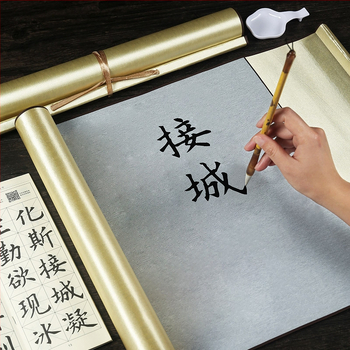 接城
化斯接城凝
勤欲现冰